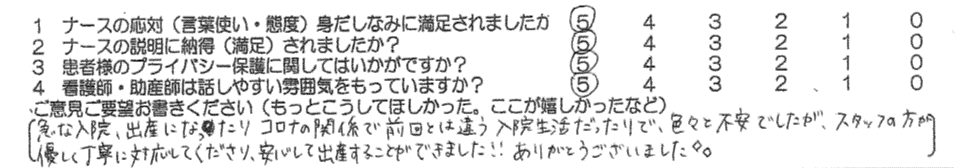 1 ナースの応対（言葉使い・態度）身だしなみに満足されましたか 5 4 3 2 1 0
2 ナースの説明に納得（満足）されましたか？ 5 4 3 2 1 0
3 患者様のプライバシー保護に関してはいかがですか？ 5 4 3 2 1 0
4 看護師・助産師は話しやすい雰囲気をもっていますか？ 5 4 3 2 1 0
ご意見ご要望お書きください（もっとこうしてほしかった。ここが嬉しかったなど）
急な入院、出産になったり コロナの関係で前回とは違う入院生活だったりで、色々と不安でしたが、スタッフの方が
優しく丁寧に対応してくださり、安心して出産することができました!! ありがとうございました。